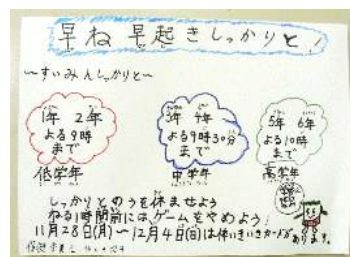 早ね 早起きしっかりと!
～すいみんしっかりと～
1年 2年
よる9時
まで
低学年
3年 4年
よる9時30分
まで
中学年
5年 6年
よる10時
まで
高学年
しっかりとのうを休ませよう
ねる1時間前には、ゲームをやめよう!
11月28日(月)～12月4日(日)は体いきいきカードが
あります。